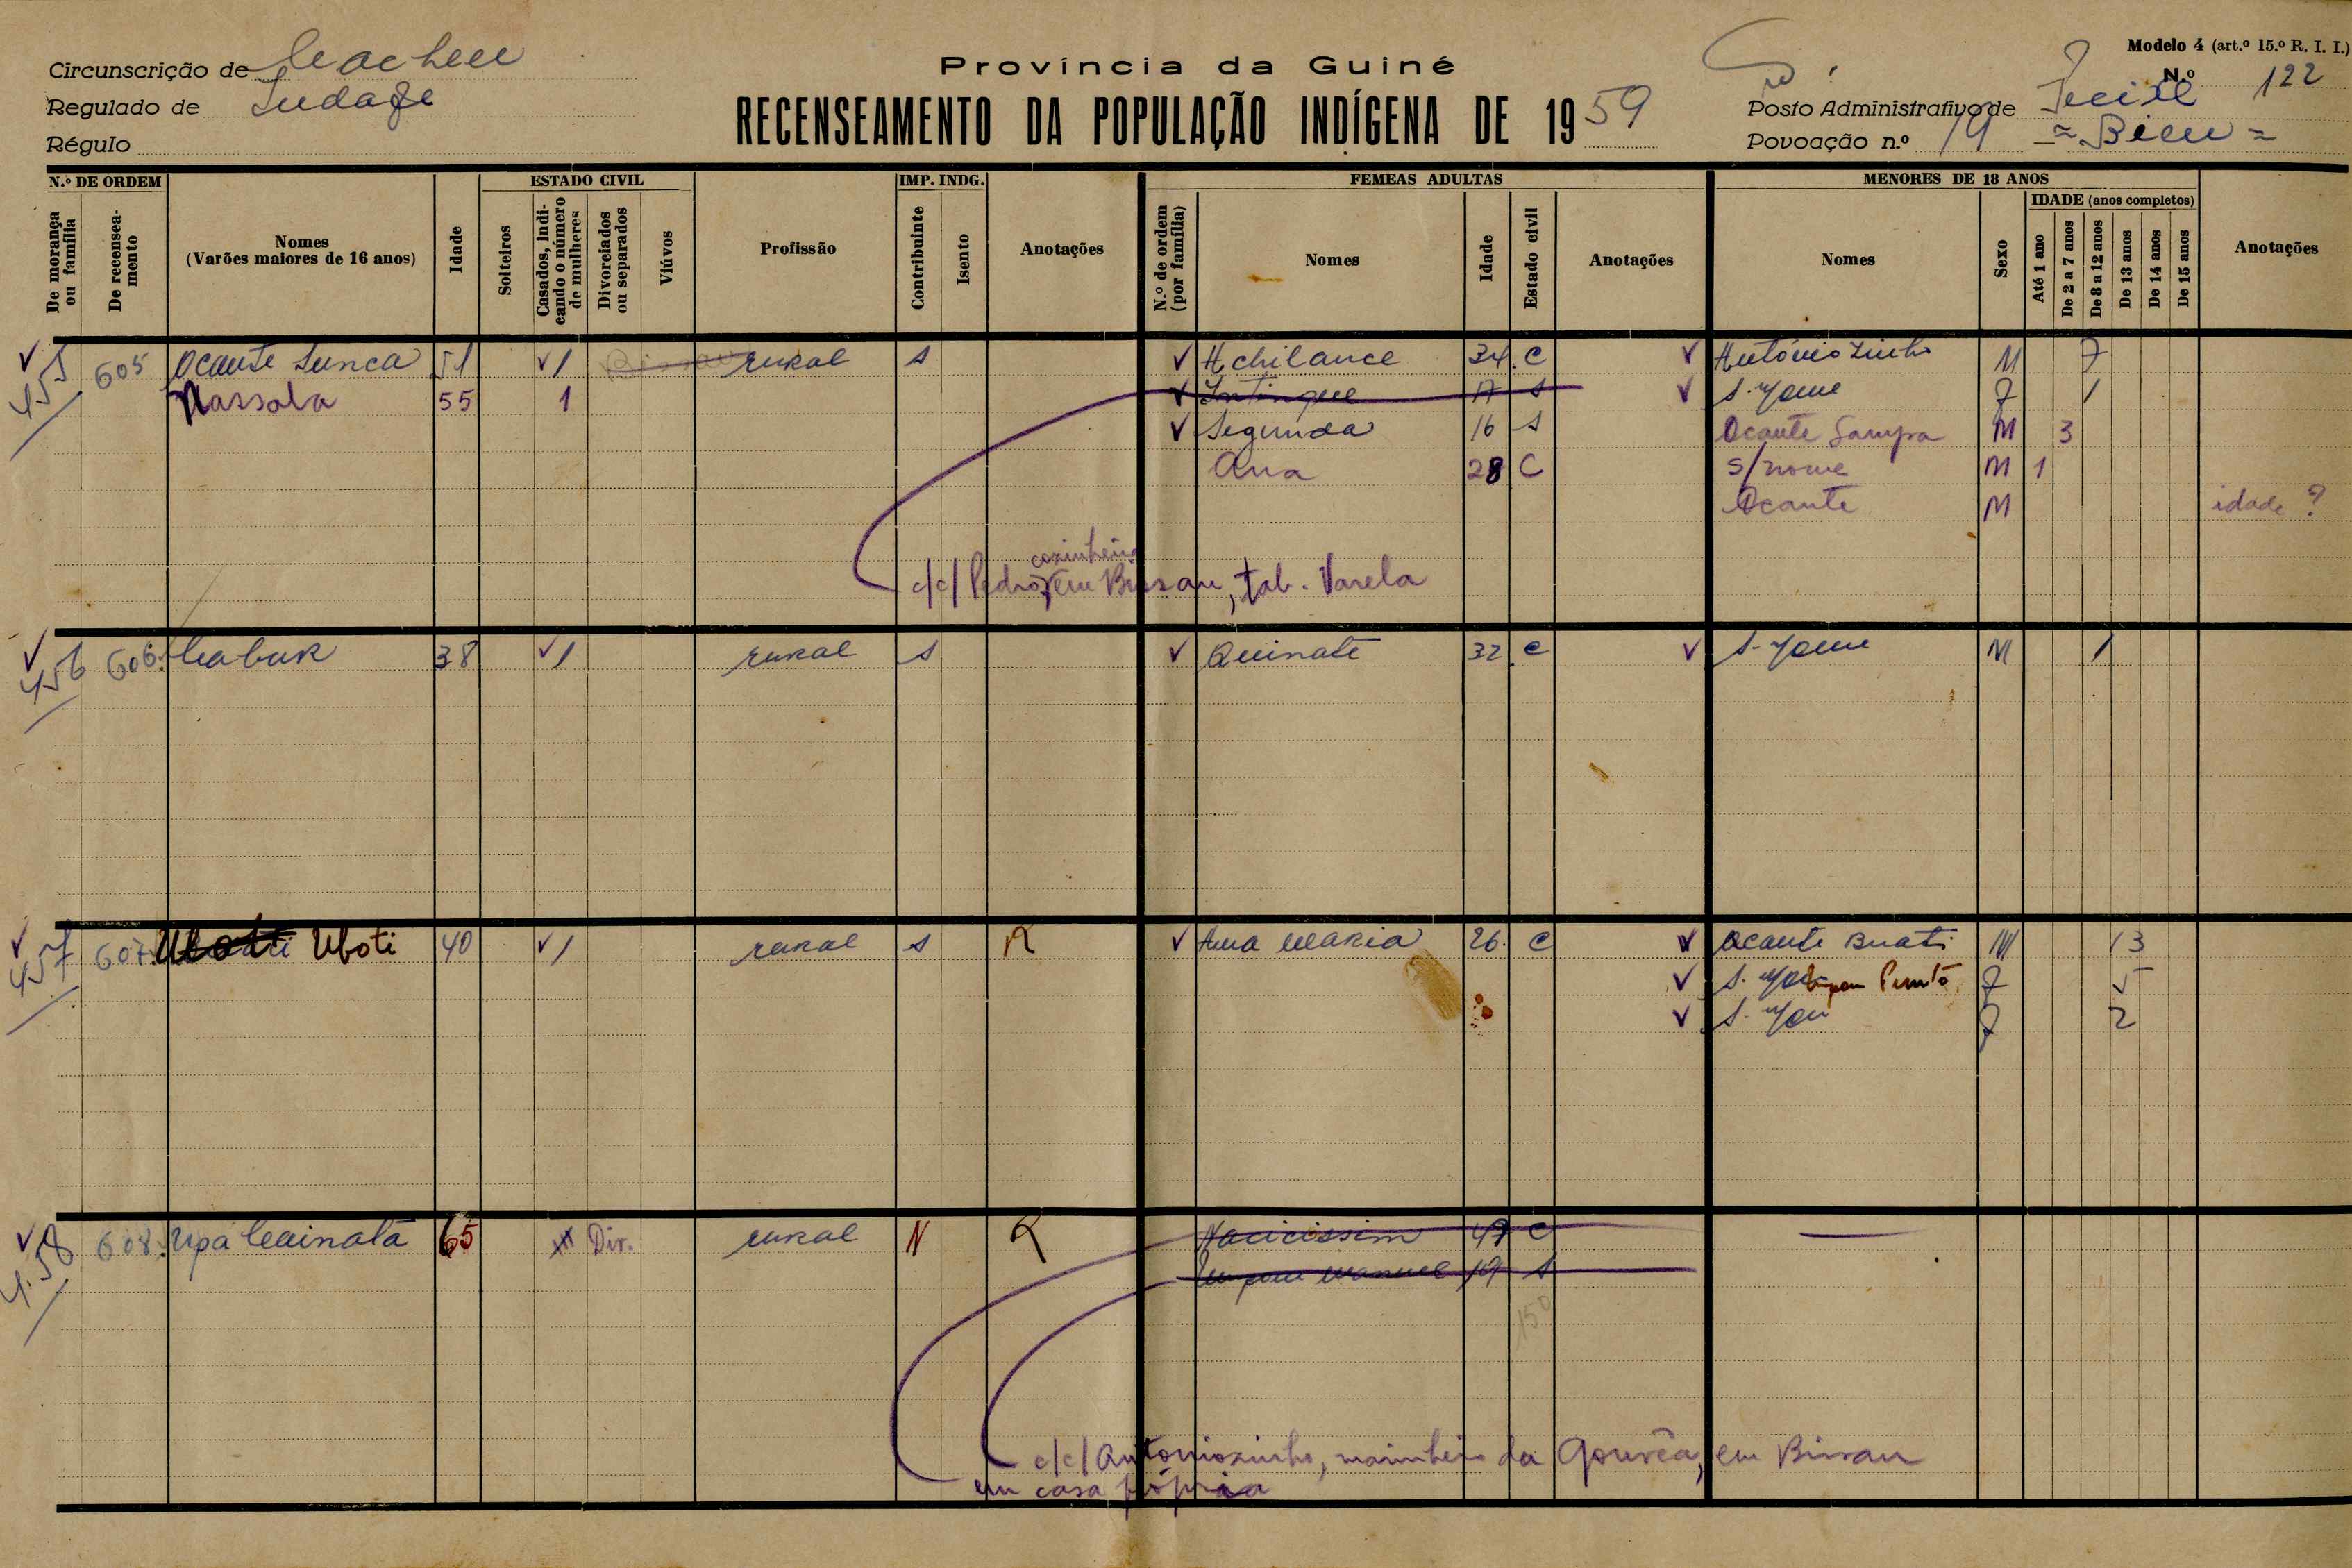 Circunscrição de Cacheu
Regulado de
Régulo
Província da Guiné
RECENSEAMENTO DA POPULAÇÃO INDÍGENA DE 1959
Modelo 4 (art.º 15.º R. I. I.)
N.º 122
Posto Administrativo de
Povoação n.º 19
N.º DE ORDEM
De morança ou família
De recenseamento
Nomes
(Varões maiores de 16 anos)
Idade
ESTADO CIVIL
Solteiros
Casados, indicando o número de mulheres
Divorciados ou separados
Viúvos
Profissão
IMP. INDG.
Contribuinte
Isento
Anotações
FEMEAS ADULTAS
N.º de ordem (por família)
Nomes
Idade
Estado civil
Anotações
MENORES DE 18 ANOS
Nomes
Sexo
IDADE (anos completos)
Até 1 ano
De 2 a 7 anos
De 8 a 12 anos
De 13 anos
De 14 anos
De 15 anos
Anotações
455 605 Ocante Sunca 51 1 rural s Achilance 34 C Antóniozinho M 7
Nassola 55 1 Intinque 17 s S. nome F 1
Segunda 16 s Ocante Sampa M 3
Ana 28 C s/nome M 1
Ocante M idade ?
cozinheiro
c/c/ Pedro, em Bissau, tab. Varela
456 606 Cabuk 38 1 rural s Quinate 32 C S. nome M 1
457 607 Uboti 40 1 rural s R Ana Maria 26 C Ocante Buati M 13
S. F 5
S. F 2
458 608 Upa Cainata 65 Div. rural N R Nacicissim 47 C
Manuel 19 s
150
c/c/ Antoniozinho, marinheiro da Gouvêa, em Bissau
em casa própria